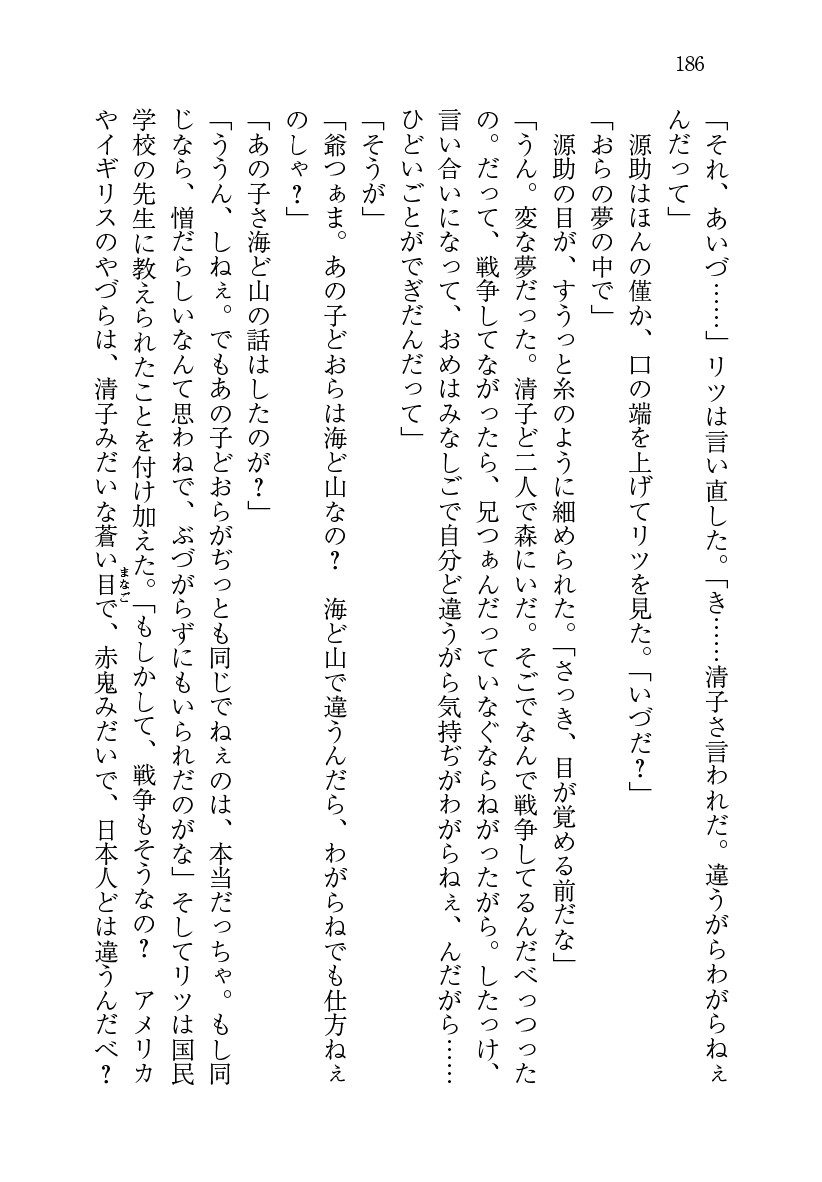 186
「それ、あいづ……」リツは言い直した。「き……清子さ言われだ。違うがらわがらねぇ
んだって」
　源助はほんの僅か、口の端を上げてリツを見た。「いづだ？」
「おらの夢の中で」
　源助の目が、すうっと糸のように細められた。「さっき、目が覚める前だな」
「うん。変な夢だった。清子ど二人で森にいだ。そごでなんで戦争してるんだべっつった
の。だって、戦争してながったら、兄つぁんだっていなぐならねがったがら。したっけ、
言い合いになって、おめはみなしごで自分ど違うがら気持ぢがわがらねぇ、んだがら……
ひどいごとがでぎだんだって」
「そうが」
「爺つぁま。あの子どおらは海ど山なの？　海ど山で違うんだら、わがらねでも仕方ねぇ
のしゃ？」
「あの子さ海ど山の話はしたのが？」
「ううん、しねぇ。でもあの子どおらがぢっとも同じでねぇのは、本当だっちゃ。もし同
じなら、憎だらしいなんて思わねで、ぶづがらずにもいられだのがな」そしてリツは国民
学校の先生に教えられたことを付け加えた。「もしかして、戦争もそうなの？　アメリカ
やイギリスのやづらは、清子みだいな蒼い目まなごで、赤鬼みだいで、日本人どは違うんだべ？